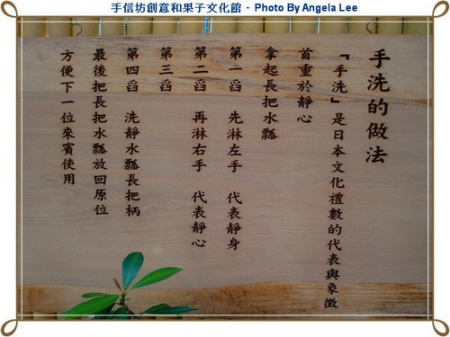 手信坊創意和果子文化館 - Photo By Angela Lee
手洗的做法
『手洗』是日本文化禮數的代表與象徵
首重於靜心
拿起長把水瓢
第一舀 先淋左手 代表靜身
第二舀 再淋右手 代表靜心
第三舀
第四舀 洗靜水瓢長把柄
最後把長把水瓢放回原位
方便下一位來賓使用